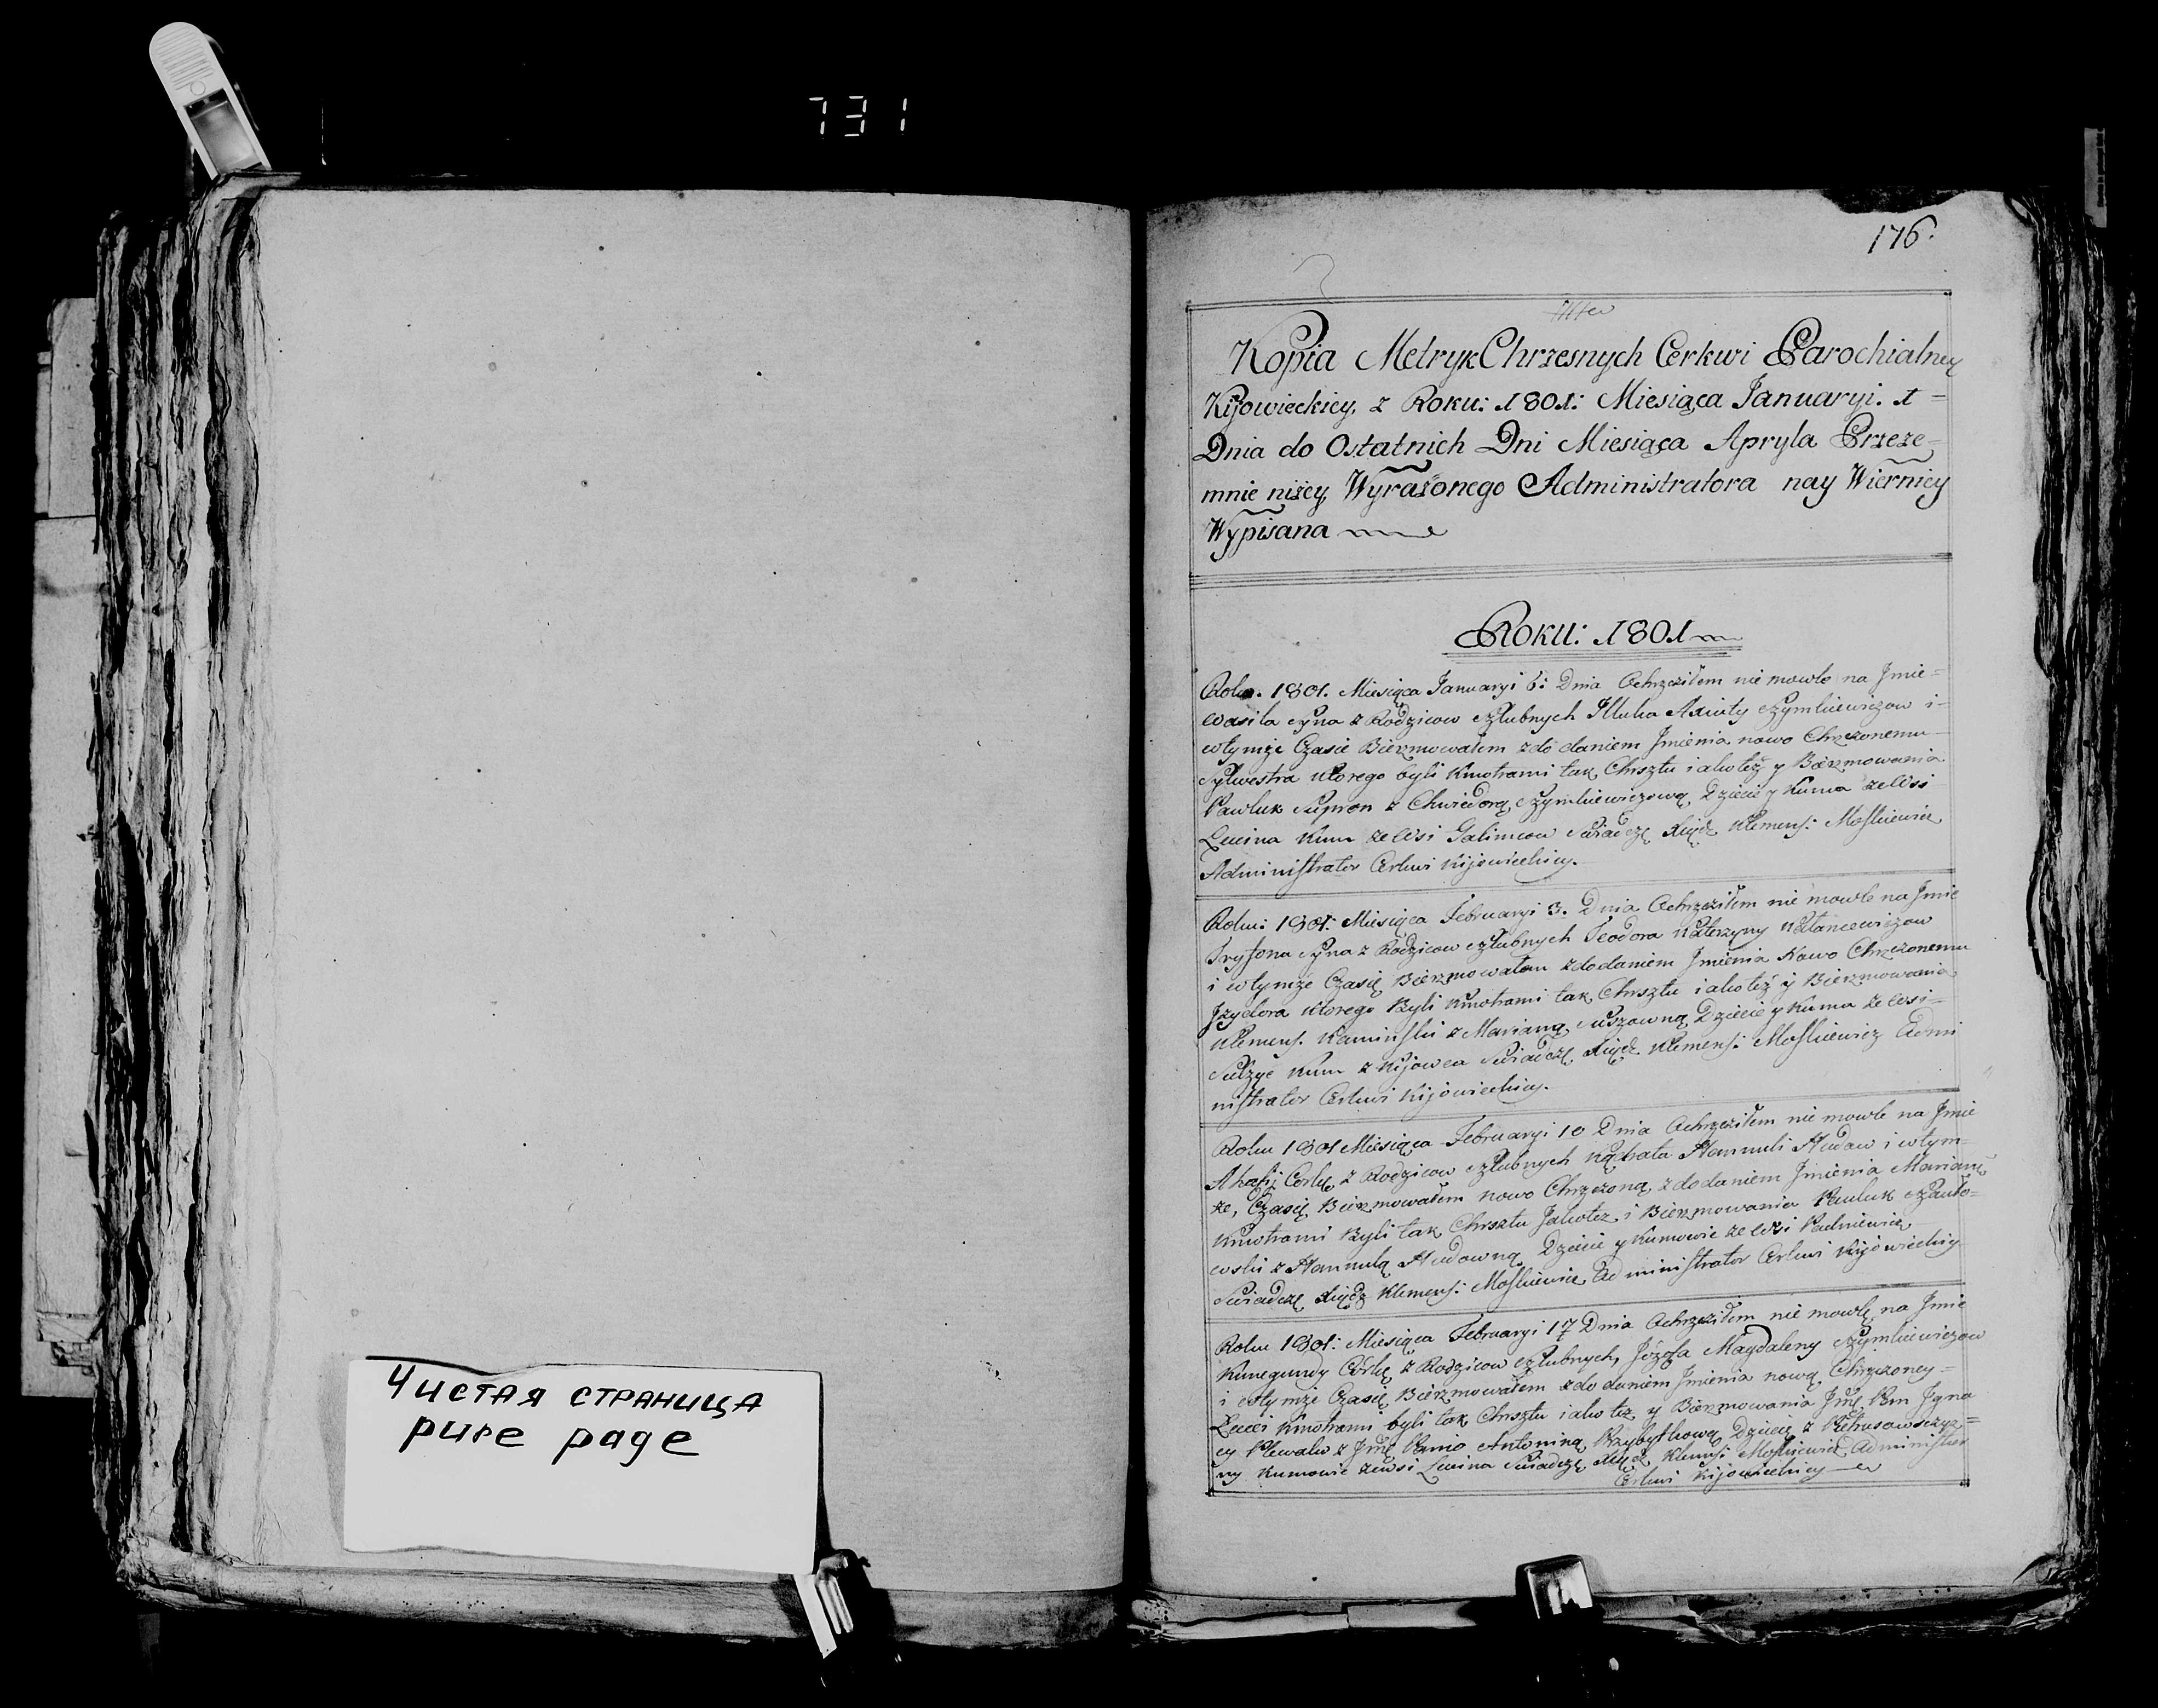 731
Чистая страница
pure page
176.
Kopia Metryk Chrzesnych Cerkwi Parochialney
Kijowieckiey, z Roku: 1801: Miesiąca Januaryi. 1 =
Dnia do Ostatnich Dni Miesiąca Apryla Przeze=
mnie niżey Wyrażonego Administratora nay Wierniey
Wypisana
Roku: 1801
Roku. 1801. Miesiąca Januaryi 6: Dnia Ochrzciłem nie mowle na Jmie=
Wasila syna z Rodzicow szlubnych Illuka Axiuty Szymkiewiczow i=
wtymże Czasie Bierzmowałem zdo daniem Jmienia nowo Chrzczonemu
Sylwestra ktorego byli Kmotrami tak Chrsztu iakoteż y Bierzmowania
Pawluk Supron z Chwiedorą Szymkiewiczową Dziecie y Kuma ze Wsi
Lewina Kum ze Wsi Swiadczę Xiądz Klemens: Moskiewicz
Administrator Cerkwi Kijowieckiey.
Roku: 1801: Miesiąca Februaryi 3. Dnia Ochrzciłem nie mowle na Jmie
Tryfona syna z Rodzicow szlubnych Teodora Katerzyny
i wtymże Czasię Bierzmowałem zdodaniem Jmienia Nowo Chrzczonemu
Jzydora ktorego Byli Kmotrami tak Chrsztu iakoteż y Bierzmowania
Klemens. Kaminski z Marianą Dziecie y Kuma ze Wsi=
Kum z Kijowca Swiadczę Xiądz Klemens: Moskiewicz Admi
nistrator Cerkwi Kijowieckiey.
Roku 1801 Miesiąca Februaryi 10 Dnia Ochrzciłem nie mowle na Jmie
Ahafij Corkę z Rodzicow szlubnych Hannuli i wtym=
że, Czasię Bierzmowałem nowo Chrzczoną, zdodaniem Jmienia Marianę
Kmotrami Byli tak Chrsztu Jakotez i Bierzmowania Pauluk
z Hannulą Dziecie y Kumowie ze Wsi
Swiadczę Xiądz Klemens: Moskiewicz Administrator Cerkwi Kijowieckiey
Roku 1801: Miesiąca Februaryi 17 Dnia Ochrzciłem nie mowlę na Jmie
Kunegundy Córkę z Rodzicow szlubnych, Józefa Magdaleny Szymkiewiczow
i wtymże Czasię Bierzmowałem zdo daniem Jmienia nową Chrzczoney=
Kmotrami byli tak Chrsztu iako też y Bierzmowania Pan Jgna
cy z Antoniną Dziecię z
ny Kumowie zewsi Lewina Swiadczę Xiądz Klemens: Moskiewicz Administer
Cerkwi Kijowieckiey